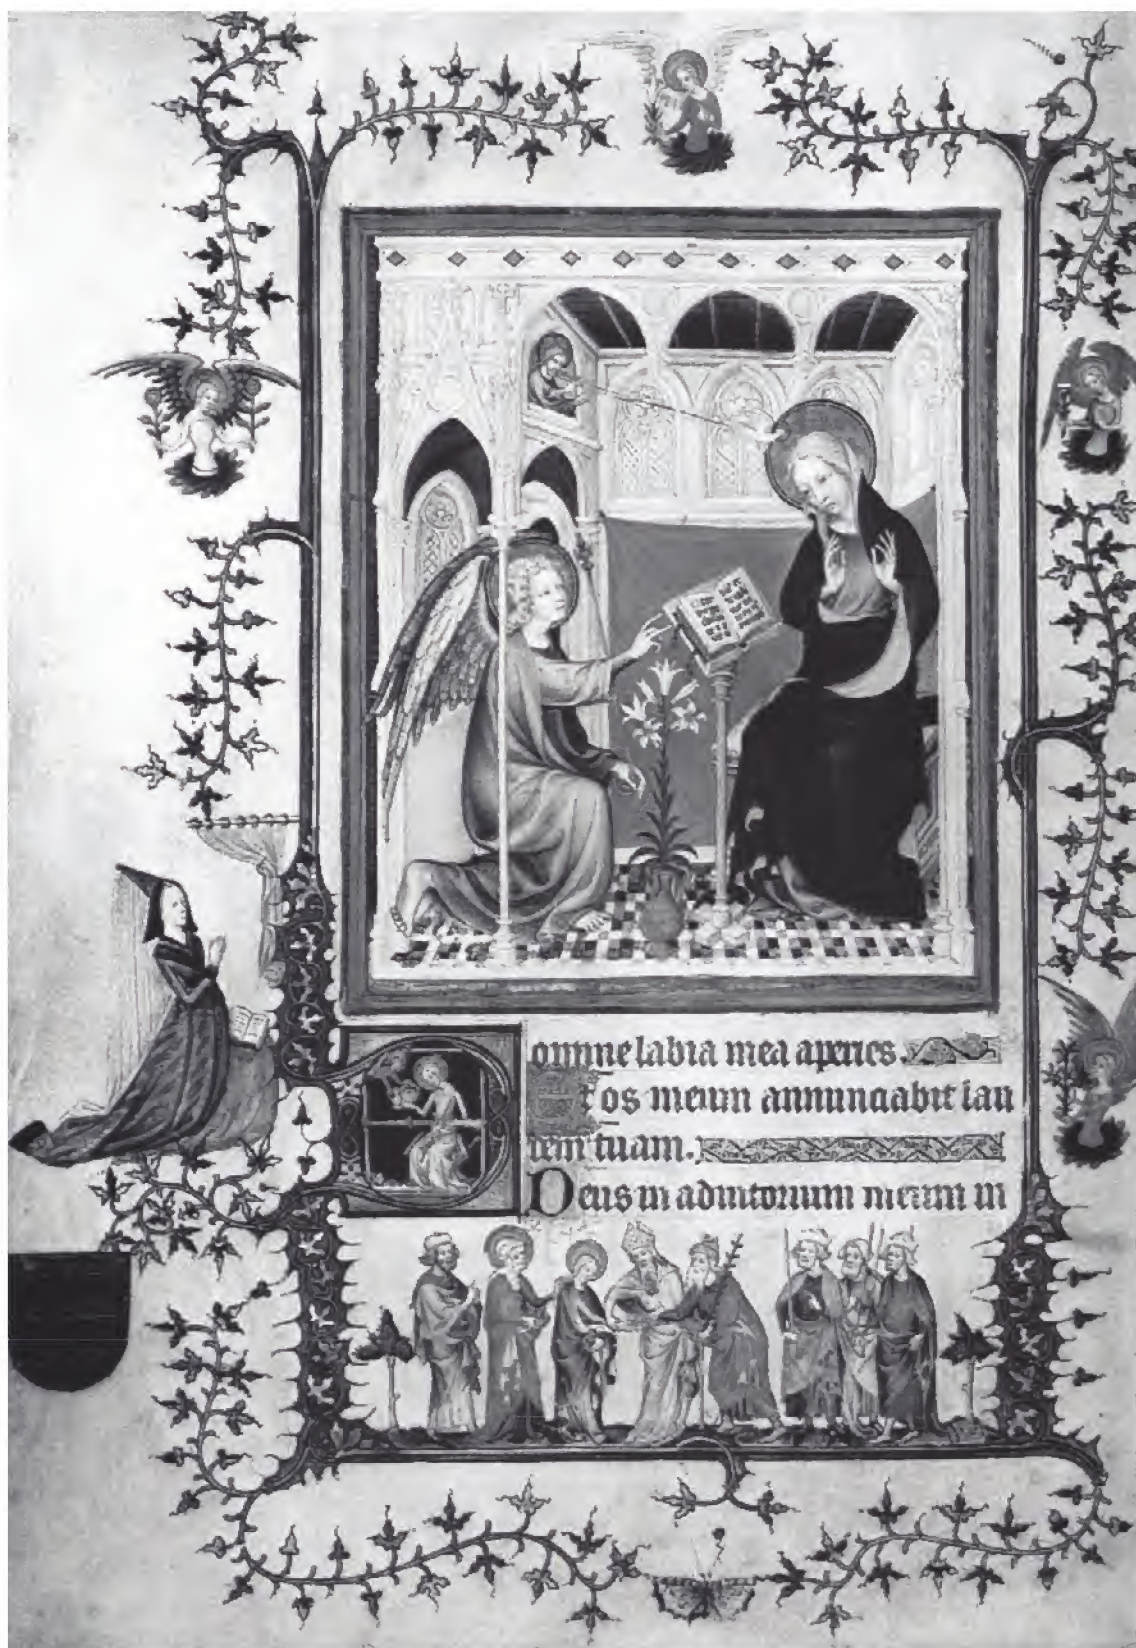 Domine labia mea aperies.
Et os meum annunciabit lau
dem tuam.
Deus in adiutorium meum in